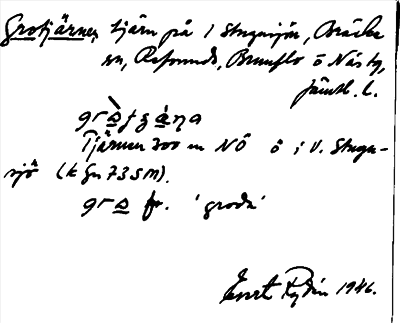 Grotjärnen, tjärn på / Stugusjön, Bräcke
sn, Refsunds, Brunflo o Näs tg,
Jämtl. l.
Tjärnen 300 m NÖ o i V. Stugu-
sjö (k gn 735 m).
fr. 'groda'
Ernst Rydin 1946.